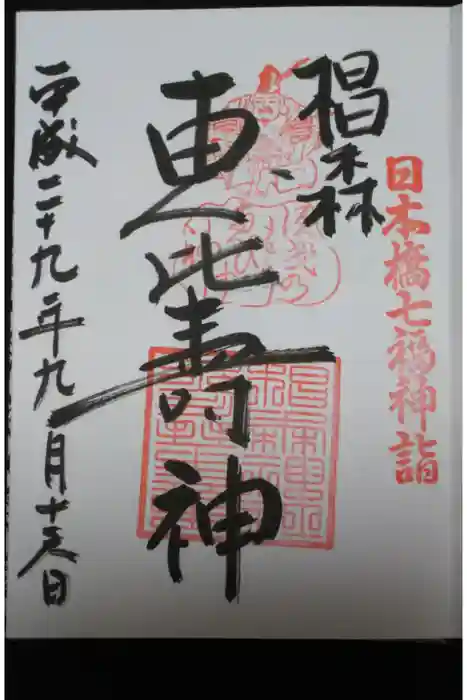 日本橋七福神詣
椙森
恵比壽神
平成二十九年九月十六日